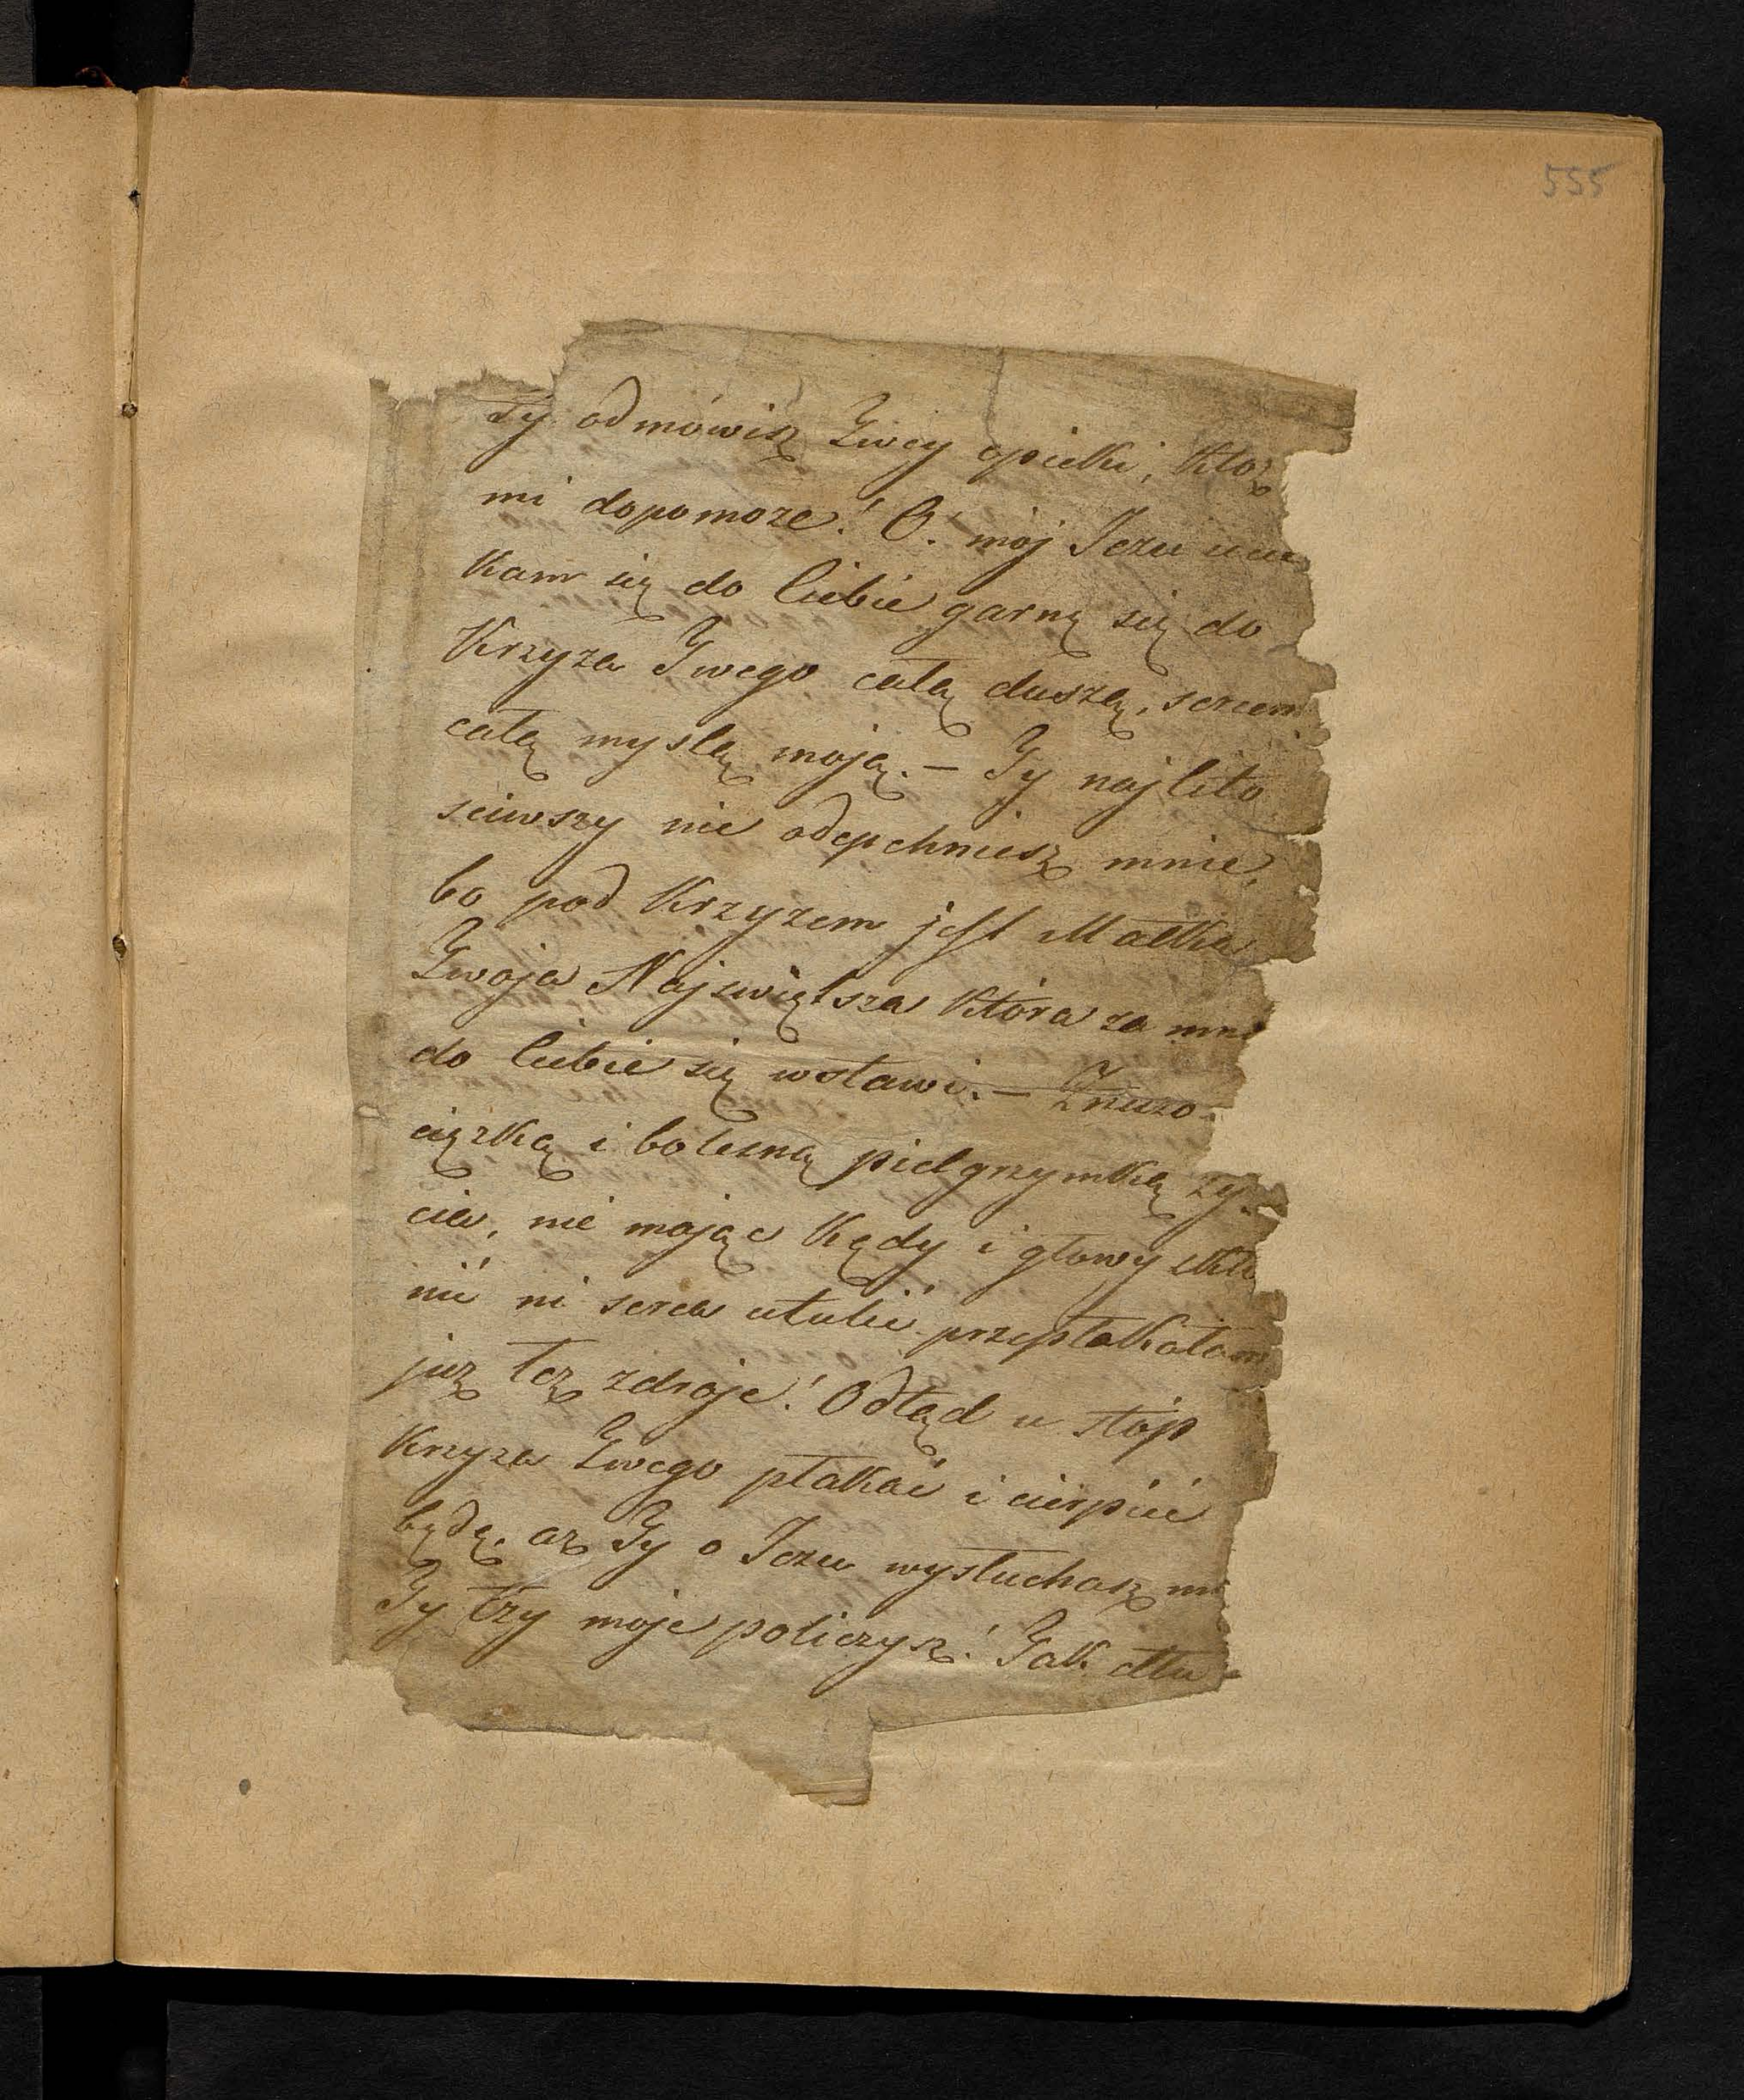 555
Ty odmówisz Twey opieki, Któz
mi dopomoze! O! mój Jezu uci
kam się do Ciebie garnę się do
Krzyza Twego całą duszą, sercem
całą myslą moją. — Ty najlito
sciwszy nie odepchniesz mnie,
bo pod Krzyzem jest Matka
Twoja Najswiętsza która za mną
do Ciebie się wstawi. — Znuzo
cięzką i bolesną pielgrzymką zy-
cia, nie mając kędy i głowy skło
nić ni serca utulić przepłakałam
juz łez zdroje! Odtąd u stóp
Krzyza Twego płakać i cierpieć
będę, az Ty o Jezu wysłuchasz mi
Ty łzy moje policzysz! Jak dłu-